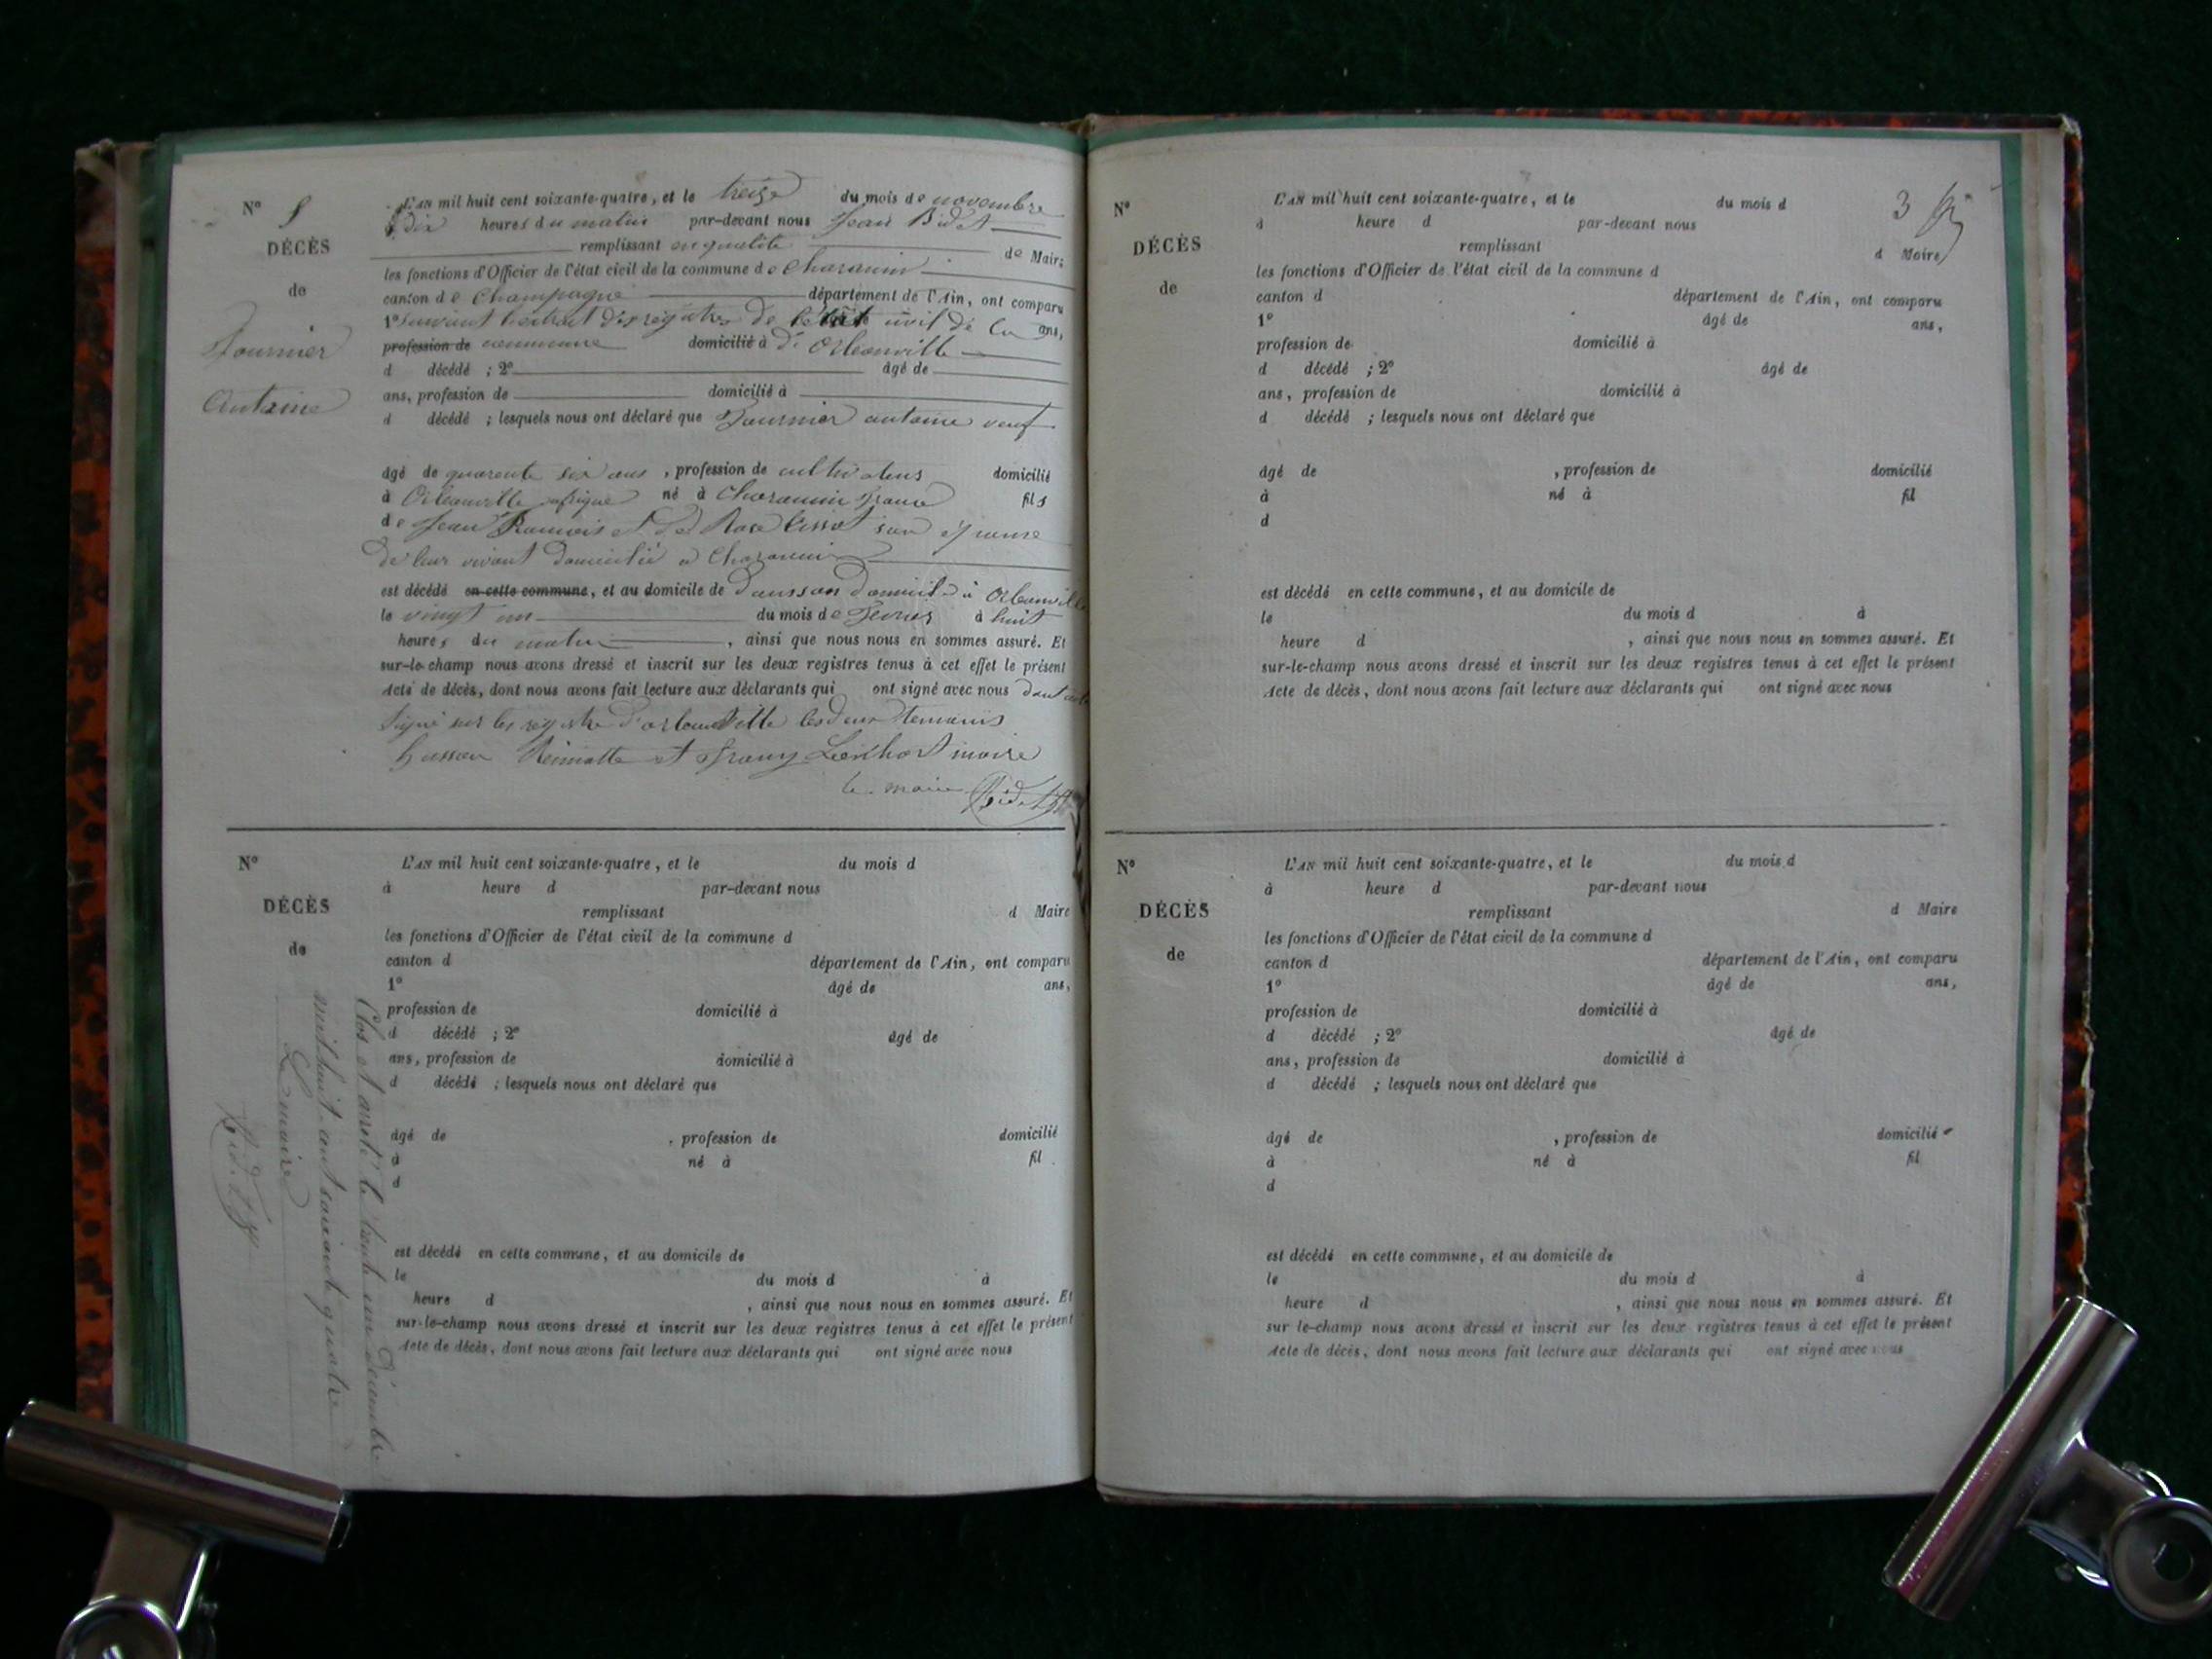 N° 8
DÉCÈS
de
Fournier
Antoine
L'AN mil huit cent soixante-quatre, et le treize du mois de novembre
à dix heures du matin par-devant nous Jean Bidet
remplissant en qualité de Maire
les fonctions d'Officier de l'état civil de la commune de Charancin
canton de Champagne département de l'Ain, ont comparu
1° Suivant l'extrait des registres de l'état civil de la ans,
profession de commune domicilié à d'Orléanville
d décédé ; 2° âgé de
ans, profession de domicilié à
d décédé ; lesquels nous ont déclaré que Fournier antoine veuf
âgé de quarante six ans, profession de cultivateur domicilié
à Orléanville afrique né à Charancin france fils
de Jean François et de Rose son épouse
de leur vivant domicilié à Charancin
est décédé en cette commune, et au domicile de dans son domicile à Orléanville
le vingt un du mois de fevrier à huit
heures du matin, ainsi que nous nous en sommes assuré. Et
sur-le-champ nous avons dressé et inscrit sur les deux registres tenus à cet effet le présent
Acte de décès, dont nous avons fait lecture aux déclarants qui ont signé avec nous dont acte
Signé sur les registre d'orleanville les deux temoins
et maire
le maire Bidet
N°
DÉCÈS
de
L'AN mil huit cent soixante-quatre, et le du mois d
à heure d par-devant nous
remplissant d Maire
les fonctions d'Officier de l'état civil de la commune d
canton d département de l'Ain, ont comparu
1° âgé de ans,
profession de domicilié à
d décédé ; 2° âgé de
ans, profession de domicilié à
d décédé ; lesquels nous ont déclaré que
âgé de , profession de domicilié
à né à fil
d
est décédé en cette commune, et au domicile de
le du mois d à
heure d , ainsi que nous nous en sommes assuré. Et
sur-le-champ nous avons dressé et inscrit sur les deux registres tenus à cet effet le présent
Acte de décès, dont nous avons fait lecture aux déclarants qui ont signé avec nous
Clos et arreté le trente un Décembre
mil huit cent soixante quatre
Le maire
Bidet
3
N°
DÉCÈS
de
L'AN mil huit cent soixante-quatre, et le du mois d
à heure d par-devant nous
remplissant d Maire
les fonctions d'Officier de l'état civil de la commune d
canton d département de l'Ain, ont comparu
1° âgé de ans,
profession de domicilié à
d décédé ; 2° âgé de
ans, profession de domicilié à
d décédé ; lesquels nous ont déclaré que
âgé de , profession de domicilié
à né à fil
d
est décédé en cette commune, et au domicile de
le du mois d à
heure d , ainsi que nous nous en sommes assuré. Et
sur-le-champ nous avons dressé et inscrit sur les deux registres tenus à cet effet le présent
Acte de décès, dont nous avons fait lecture aux déclarants qui ont signé avec nous
N°
DÉCÈS
de
L'AN mil huit cent soixante-quatre, et le du mois d
à heure d par-devant nous
remplissant d Maire
les fonctions d'Officier de l'état civil de la commune d
canton d département de l'Ain, ont comparu
1° âgé de ans,
profession de domicilié à
d décédé ; 2° âgé de
ans, profession de domicilié à
d décédé ; lesquels nous ont déclaré que
âgé de , profession de domicilié
à né à fil
d
est décédé en cette commune, et au domicile de
le du mois d à
heure d , ainsi que nous nous en sommes assuré. Et
sur le-champ nous avons dressé et inscrit sur les deux registres tenus à cet effet le présent
Acte de décès, dont nous avons fait lecture aux déclarants qui ont signé avec nous